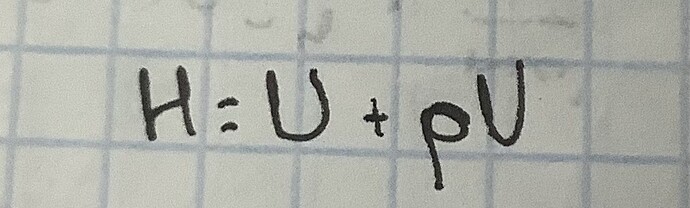 H = U + pV